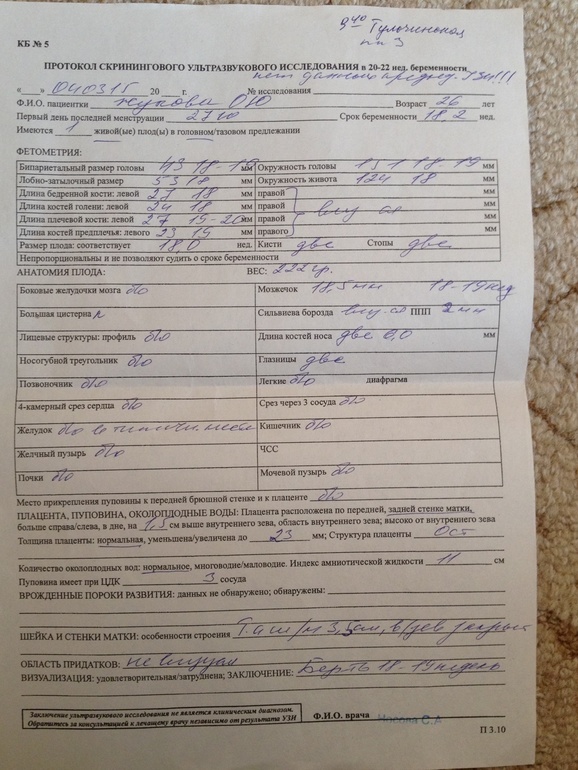 д/о Тулочинской
пп 3
КБ № 5
ПРОТОКОЛ СКРИНИНГОВОГО УЛЬТРАЗВУКОВОГО ИССЛЕДОВАНИЯ в 20-22 нед. беременности
нет данных предыд. УЗИ!!!
« » 040315 20 г. № исследования
Ф.И.О. пациентки Жукова О Ю Возраст 26 лет
Первый день последней менструации Срок беременности 18,2 нед.
Имеются 1 живой(ые) плод(ы) в головном/тазовом предлежании
ФЕТОМЕТРИЯ:
Бипариетальный размер головы 43 18-19 мм Окружность головы 151 18-19 мм
Лобно-затылочный размер 53 18 мм Окружность живота 124 18 мм
Длина бедренной кости: левой 27 18 мм правой
Длина костей голени: левой 24 18 мм правой
Длина плечевой кости: левой 27 19-20 мм правой
Длина костей предплечья: левого 23 19 мм правого
Размер плода: соответствует 18,0 нед. Кисти две Стопы две
Непропорциональны и не позволяют судить о сроке беременности
АНАТОМИЯ ПЛОДА: ВЕС: 222 гр.
Боковые желудочки мозга б/о Мозжечок 18,5 мм 18-19 нед
Большая цистерна Сильвиева борозда ППП 2 мм
Лицевые структуры: профиль б/о Длина костей носа две мм
Носогубной треугольник б/о Глазницы две
Позвоночник б/о Легкие б/о диафрагма
4-камерный срез сердца б/о Срез через 3 сосуда б/о
Желудок б/о в типичн. месте Кишечник б/о
Желчный пузырь б/о ЧСС
Почки б/о Мочевой пузырь б/о
Место прикрепления пуповины к передней брюшной стенке и к плаценте б/о
ПЛАЦЕНТА, ПУПОВИНА, ОКОЛОПЛОДНЫЕ ВОДЫ: Плацента расположена по передней, задней стенке матки,
больше справа/слева, в дне, на 1,5 см выше внутреннего зева, область внутреннего зева; высоко от внутреннего зева
Толщина плаценты: нормальная, уменьшена/увеличена до 23 мм; Структура плаценты 0 ст
Количество околоплодных вод: нормальное, многоводие/маловодие. Индекс амниотической жидкости 11 см
Пуповина имеет при ЦДК 3 сосуда
ВРОЖДЕННЫЕ ПОРОКИ РАЗВИТИЯ: данных не обнаружено; обнаружены:
ШЕЙКА И СТЕНКИ МАТКИ: особенности строения ш/м 3,5 см, в/зев закрыт
ОБЛАСТЬ ПРИДАТКОВ: не визуал
ВИЗУАЛИЗАЦИЯ: удовлетворительна/затруднена; ЗАКЛЮЧЕНИЕ: Бер-ть 18-19 недель
Заключение ультразвукового исследования не является клиническим диагнозом.
Обратитесь за консультацией к лечащему врачу независимо от результата УЗИ
Ф.И.О. врача Носова С.А
П 3.10